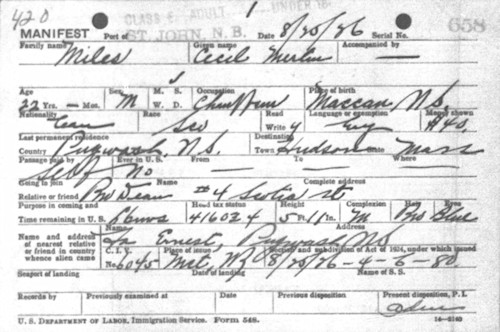 420
CLASS E ADULT UNDER 16
1
MANIFEST Port of ST. JOHN, N. B. Date 8/25/26 Serial No. 658
Family name Given name Accompanied by
Miles Cecil Merlin —
Age Sex M. S. Occupation Place of birth
22 Yrs. — Mos. M W. D. Maccan N.S.
Nationality Race Read Language or exemption Money shown
Can Sco Write y Eng $40.
Last permanent residence Destination
Country Pugwash, N.S. Town Hudson Mass
Passage paid by Ever in U. S. From To Where
Self No — — —
Going to join Name Complete address
Relative or friend Bro Dean #4 Scotia St.
Purpose in coming and Head tax status Height Complexion Hair Eyes
Time remaining in U.S. 416024 5 Ft. 11 In. M Bro Blue
Name and address of nearest relative or friend in country whence alien came
Fa Ernest, Pugwash N.S.
C. I. V. Place of issue and subdivision of Act of 1924, under which issued
No 6045 8/25/26 - 4 - 6 - 80
Seaport of landing Date of landing Name of S. S.
Records by Previously examined at Date Present disposition, P. I.
Adm
U. S. DEPARTMENT OF LABOR, Immigration Service. Form 548. 14-2160